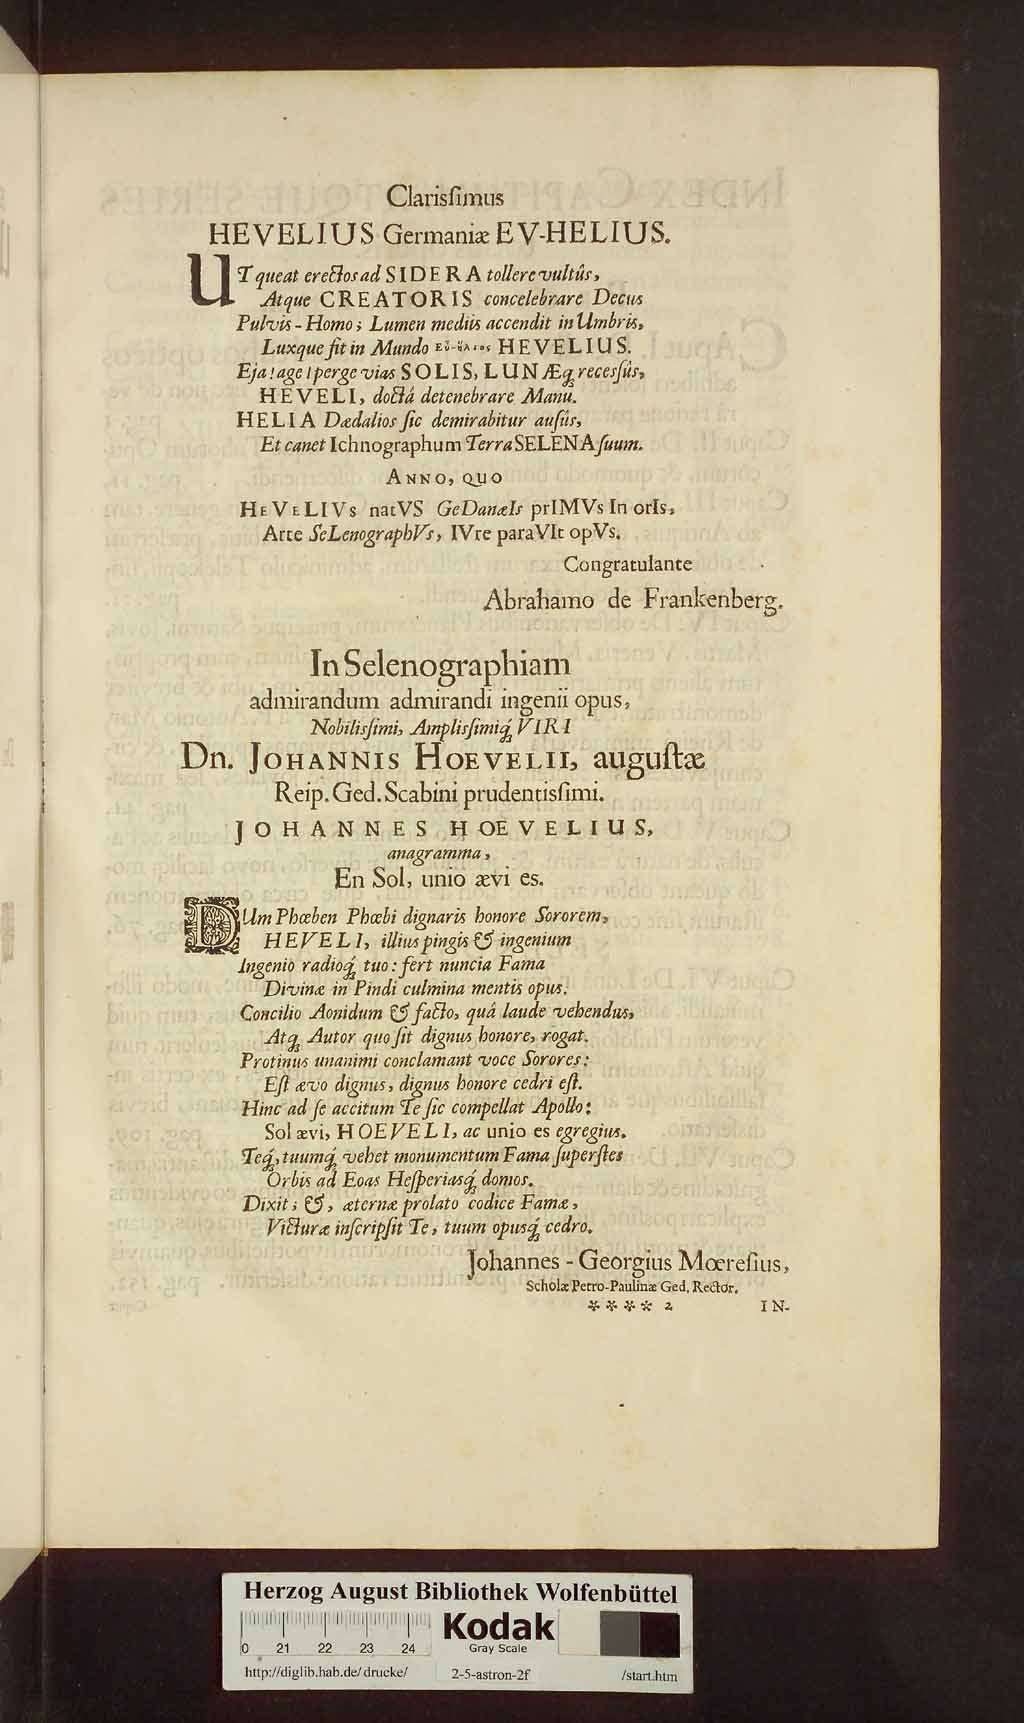 Clarisſimus
HEVELIUS Germaniæ EV-HELIUS.
UT queat erectos ad SIDERA tollere vultûs,
Atque CREATORIS concelebrare Decus
Pulvis-Homo; Lumen mediis accendit in Umbris,
Luxque fit in Mundo Εὖ-ἥλιος HEVELIUS.
Eja! age! perge vias SOLIS, LUNÆq́; recesſûs,
HEVELI, doctâ detenebrare Manu.
HELIA Dædalios ſic demirabitur auſûs,
Et canet Ichnographum Terra SELENA ſuum.
ANNO, QUO
HEVELIVs natVS GeDanæIs prIMVs In orIs,
Arte SeLenographVs, IVre paraVIt opVs.
Congratulante
Abrahamo de Frankenberg.
In Selenographiam
admirandum admirandi ingenii opus,
Nobilisſimi, Amplisſimiq́; VIRI
Dn. JOHANNIS HOEVELII, auguſtæ
Reip. Ged. Scabini prudentisſimi.
JOHANNES HOEVELIUS,
anagramma,
En Sol, unio ævi es.
DUm Phœben Phœbi dignaris honore Sororem,
HEVELI, illius pingis & ingenium
Ingenio radioq́; tuo: fert nuncia Fama
Divinæ in Pindi culmina mentis opus.
Concilio Aonidum & facto, quâ laude vehendus,
Atq; Autor quo ſit dignus honore, rogat.
Protinus unanimi conclamant voce Sorores:
Eſt ævo dignus, dignus honore cedri eſt.
Hinc ad ſe accitum Te ſic compellat Apollo:
Sol ævi, HOEVELI, ac unio es egregius.
Teq́;, tuumq́; vehet monumentum Fama ſuperſtes
Orbis ad Eoas Heſperiasq́; domos.
Dixit; &, æternæ prolato codice Famæ,
Victuræ inſcripſit Te, tuum opusq́; cedro.
Johannes-Georgius Mœreſius,
Scholæ Petro-Paulinæ Ged, Rector.
**** 2 IN-
Herzog August Bibliothek Wolfenbüttel
Kodak
Gray Scale
0 21 22 23 24
http://diglib.hab.de/drucke/ 2-5-astron-2f /start.htm